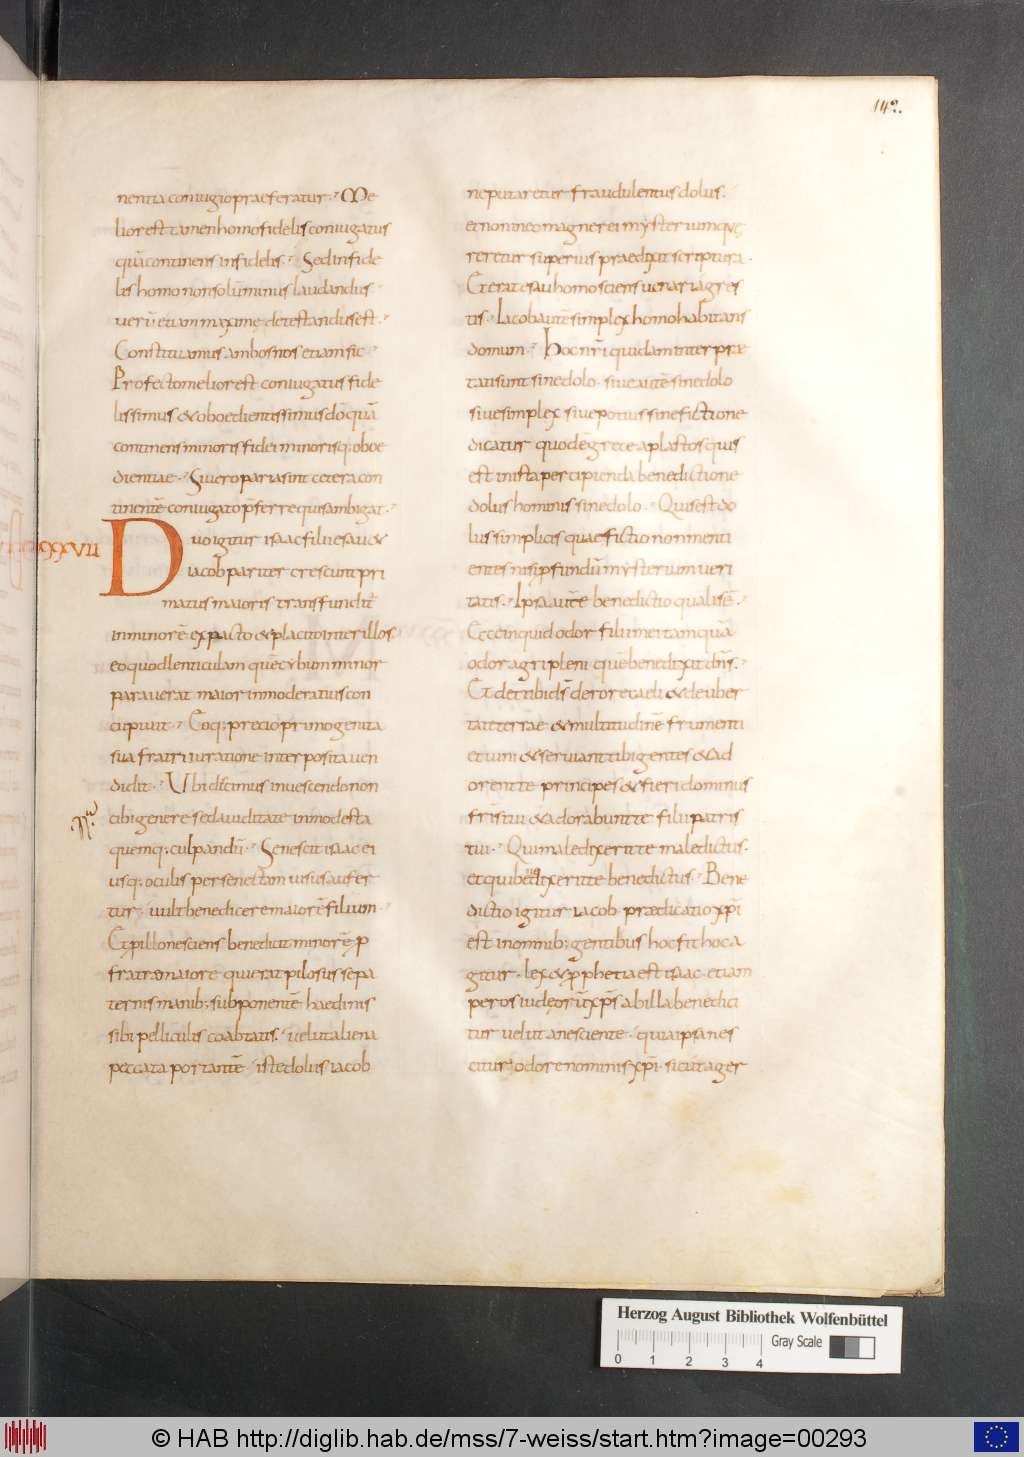 142.
nentia coniugio praeferatur. Me
lior est tamen homo fidelis coniugatus
quā continens infidelis. Sed infide
lis homo non solū minus laudandus
uerū etiam maxime detestandus est.
Constituamus ambos nos etiam sic
Profecto melior est coniugatus fide
lissimus & oboedientissimus dō quā
continens minoris fidei minorisq; oboe
dientiae. Si uero paria sint cetera con
tinentē coniugato p̄ferre quis ambigat.
XXXVII
Duo igitur isaac filii esau &
iacob pariter crescunt pri
matus maioris transfundit̄
in minorē ex pacto & placito inter illos
eo quod lenticulam quē cybum minor
parauerat maior inmoderatius con
cupiuit. Eoq; precio primogenita
sua fratri iuratione interposita uen
didit. Ubi discimus in uescendo non
cibi genere sed auiditate inmodesta
quemq; culpandū. Senescit isaac ei
usq; oculis per senectam uisus aufer
tur. uult benedicere maiorē filium.
Et p illo nesciens benedicit minorē p
fratre maiore qui erat pilosus se pa
ternis manib; subponentē haedinis
sibi pelliculis coabtatis. uelut aliena
peccata portantē iste dolus iacob
ne putaretur fraudulentus dolus.
et non in eo magne rei mysterium quę
reretur superius praedixit scriptura.
Et erat esau homo sciens uenari agres
tis. Iacob autē simplex homo habitans
domum. Hoc nr̄i quidam interprae
tati sunt sine dolo. siue autē sine dolo
siue simplex siue potius sine fictione
dicatur quod ē grece aplastos quis
est in ista percipienda benedictione
dolus hominis sine dolo. Quis est do
lus simplicis quae fictio non menti
entis nisi p̄fundū mysterium ueri
tatis. Ipsa autē benedictio qualis ē.
Ecce inquid odor filii mei tamquā
odor agri pleni quē benedixit dn̄s.
Et det tibi ds̄ de rore caeli & de uber
tate terrae & multitudinē frumenti
et uini & seruiant tibi gentes & ad
orent te principes & fieri dominus
fr̄is tui & adorabunt te filii patris
tui. Qui maledixerit te maledictus.
et qui benedixerit te benedictus. Bene
dictio igitur iacob praedicatio xp̄i
est in omnib; gentibus hoc fit hoc a
gitur. lex & p̄phetia est isaac etiam
per os iudęorū xp̄s ab illa benedici
tur uelut a nesciente. quia ipsa nes
citur odore nominis xp̄i. sicut ager
Herzog August Bibliothek Wolfenbüttel
Gray Scale
0 1 2 3 4
© HAB http://diglib.hab.de/mss/7-weiss/start.htm?image=00293